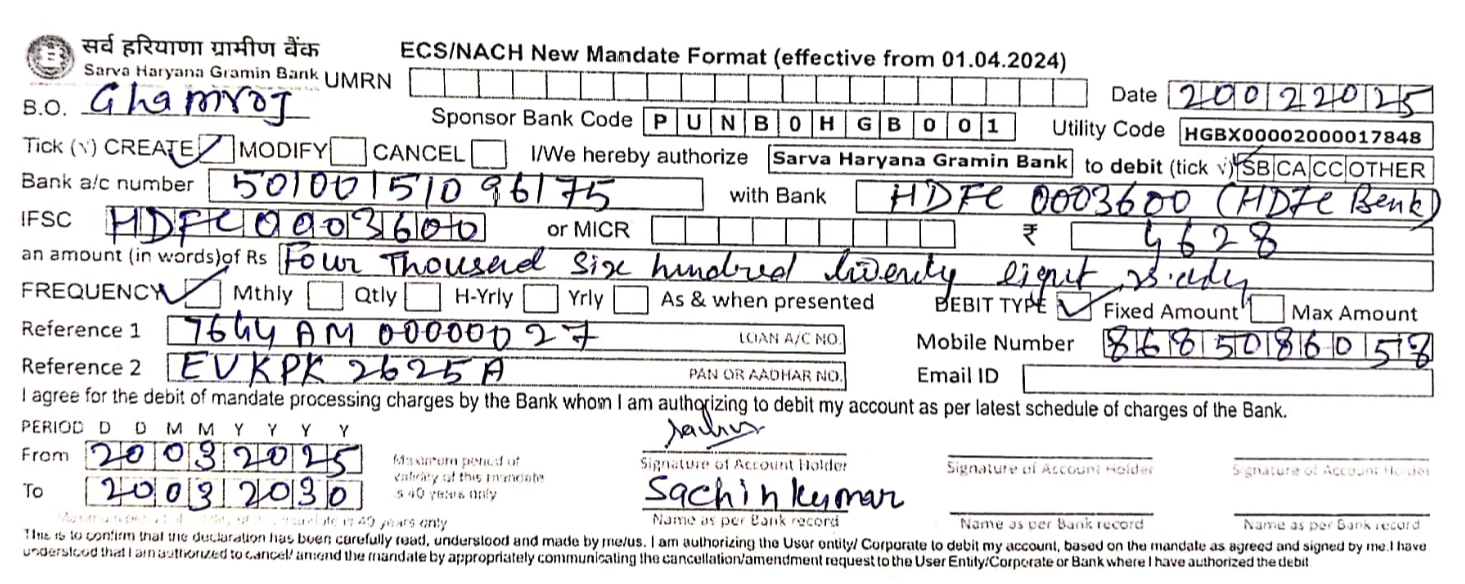 सर्व हरियाणा ग्रामीण बैंक
Sarva Haryana Gramin Bank
ECS/NACH New Mandate Format (effective from 01.04.2024)
UMRN
Date 20022025
B.O. Ghamroj
Sponsor Bank Code PUNB0HGB001 Utility Code HGBX00002000017848
Tick (√) CREATE MODIFY CANCEL I/We hereby authorize Sarva Haryana Gramin Bank to debit (tick √) SB CA CC OTHER
Bank a/c number 50100151096175 with Bank HDFC 0003600 (HDFC Bank)
IFSC HDFC0003600 or MICR ₹ 4628
an amount (in words) of Rs Four Thousand Six hundred twenty eight
FREQUENCY Mthly Qtly H-Yrly Yrly As & when presented DEBIT TYPE Fixed Amount Max Amount
Reference 1 7644AM00000027 LOAN A/C NO. Mobile Number 8685086058
Reference 2 EVKPK2625A PAN OR AADHAR NO. Email ID
I agree for the debit of mandate processing charges by the Bank whom I am authorizing to debit my account as per latest schedule of charges of the Bank.
PERIOD D D M M Y Y Y Y
From 20032025
To 20032030
Maximum period of
validity of this mandate
is 40 years only
Sachin
Signature of Account Holder Signature of Account Holder Signature of Account Holder
Sachin kumar
Name as per Bank record Name as per Bank record Name as per Bank record
This is to confirm that the declaration has been carefully read, understood and made by me/us. I am authorizing the User entity/ Corporate to debit my account, based on the mandate as agreed and signed by me. I have
understood that I am authorized to cancel/ amend the mandate by appropriately communicating the cancellation/amendment request to the User Entity/Corporate or Bank where I have authorized the debit